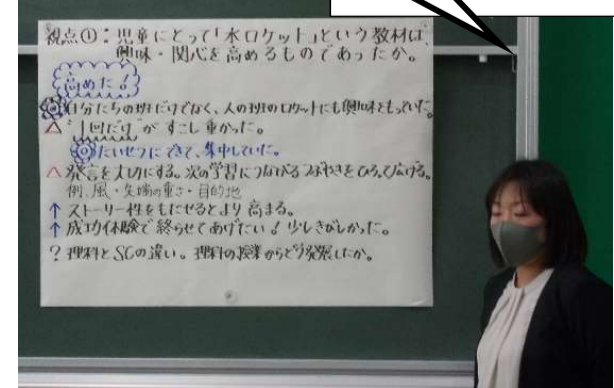 視点①:児童にとって「水ロケット」という教材は、
興味・関心を高めるものであったか。
高めた!
◎自分たちの班だけでなく、人の班のロケットにも興味をもっていた。
△ "1回だけ" が すこし重かった。
◎たいせつにできて、集中していた。
△ 発言を大切にする。次の学習につながるつぶやきをひろって広げる。
例、風・先端の重さ・目的地
↑ ストーリー性をもたせるとより高まる。
↑ 成功体験で終らせてあげたい! 少しきびしかった。
? 理科とSCの違い。理科の授業からどう発展したか。